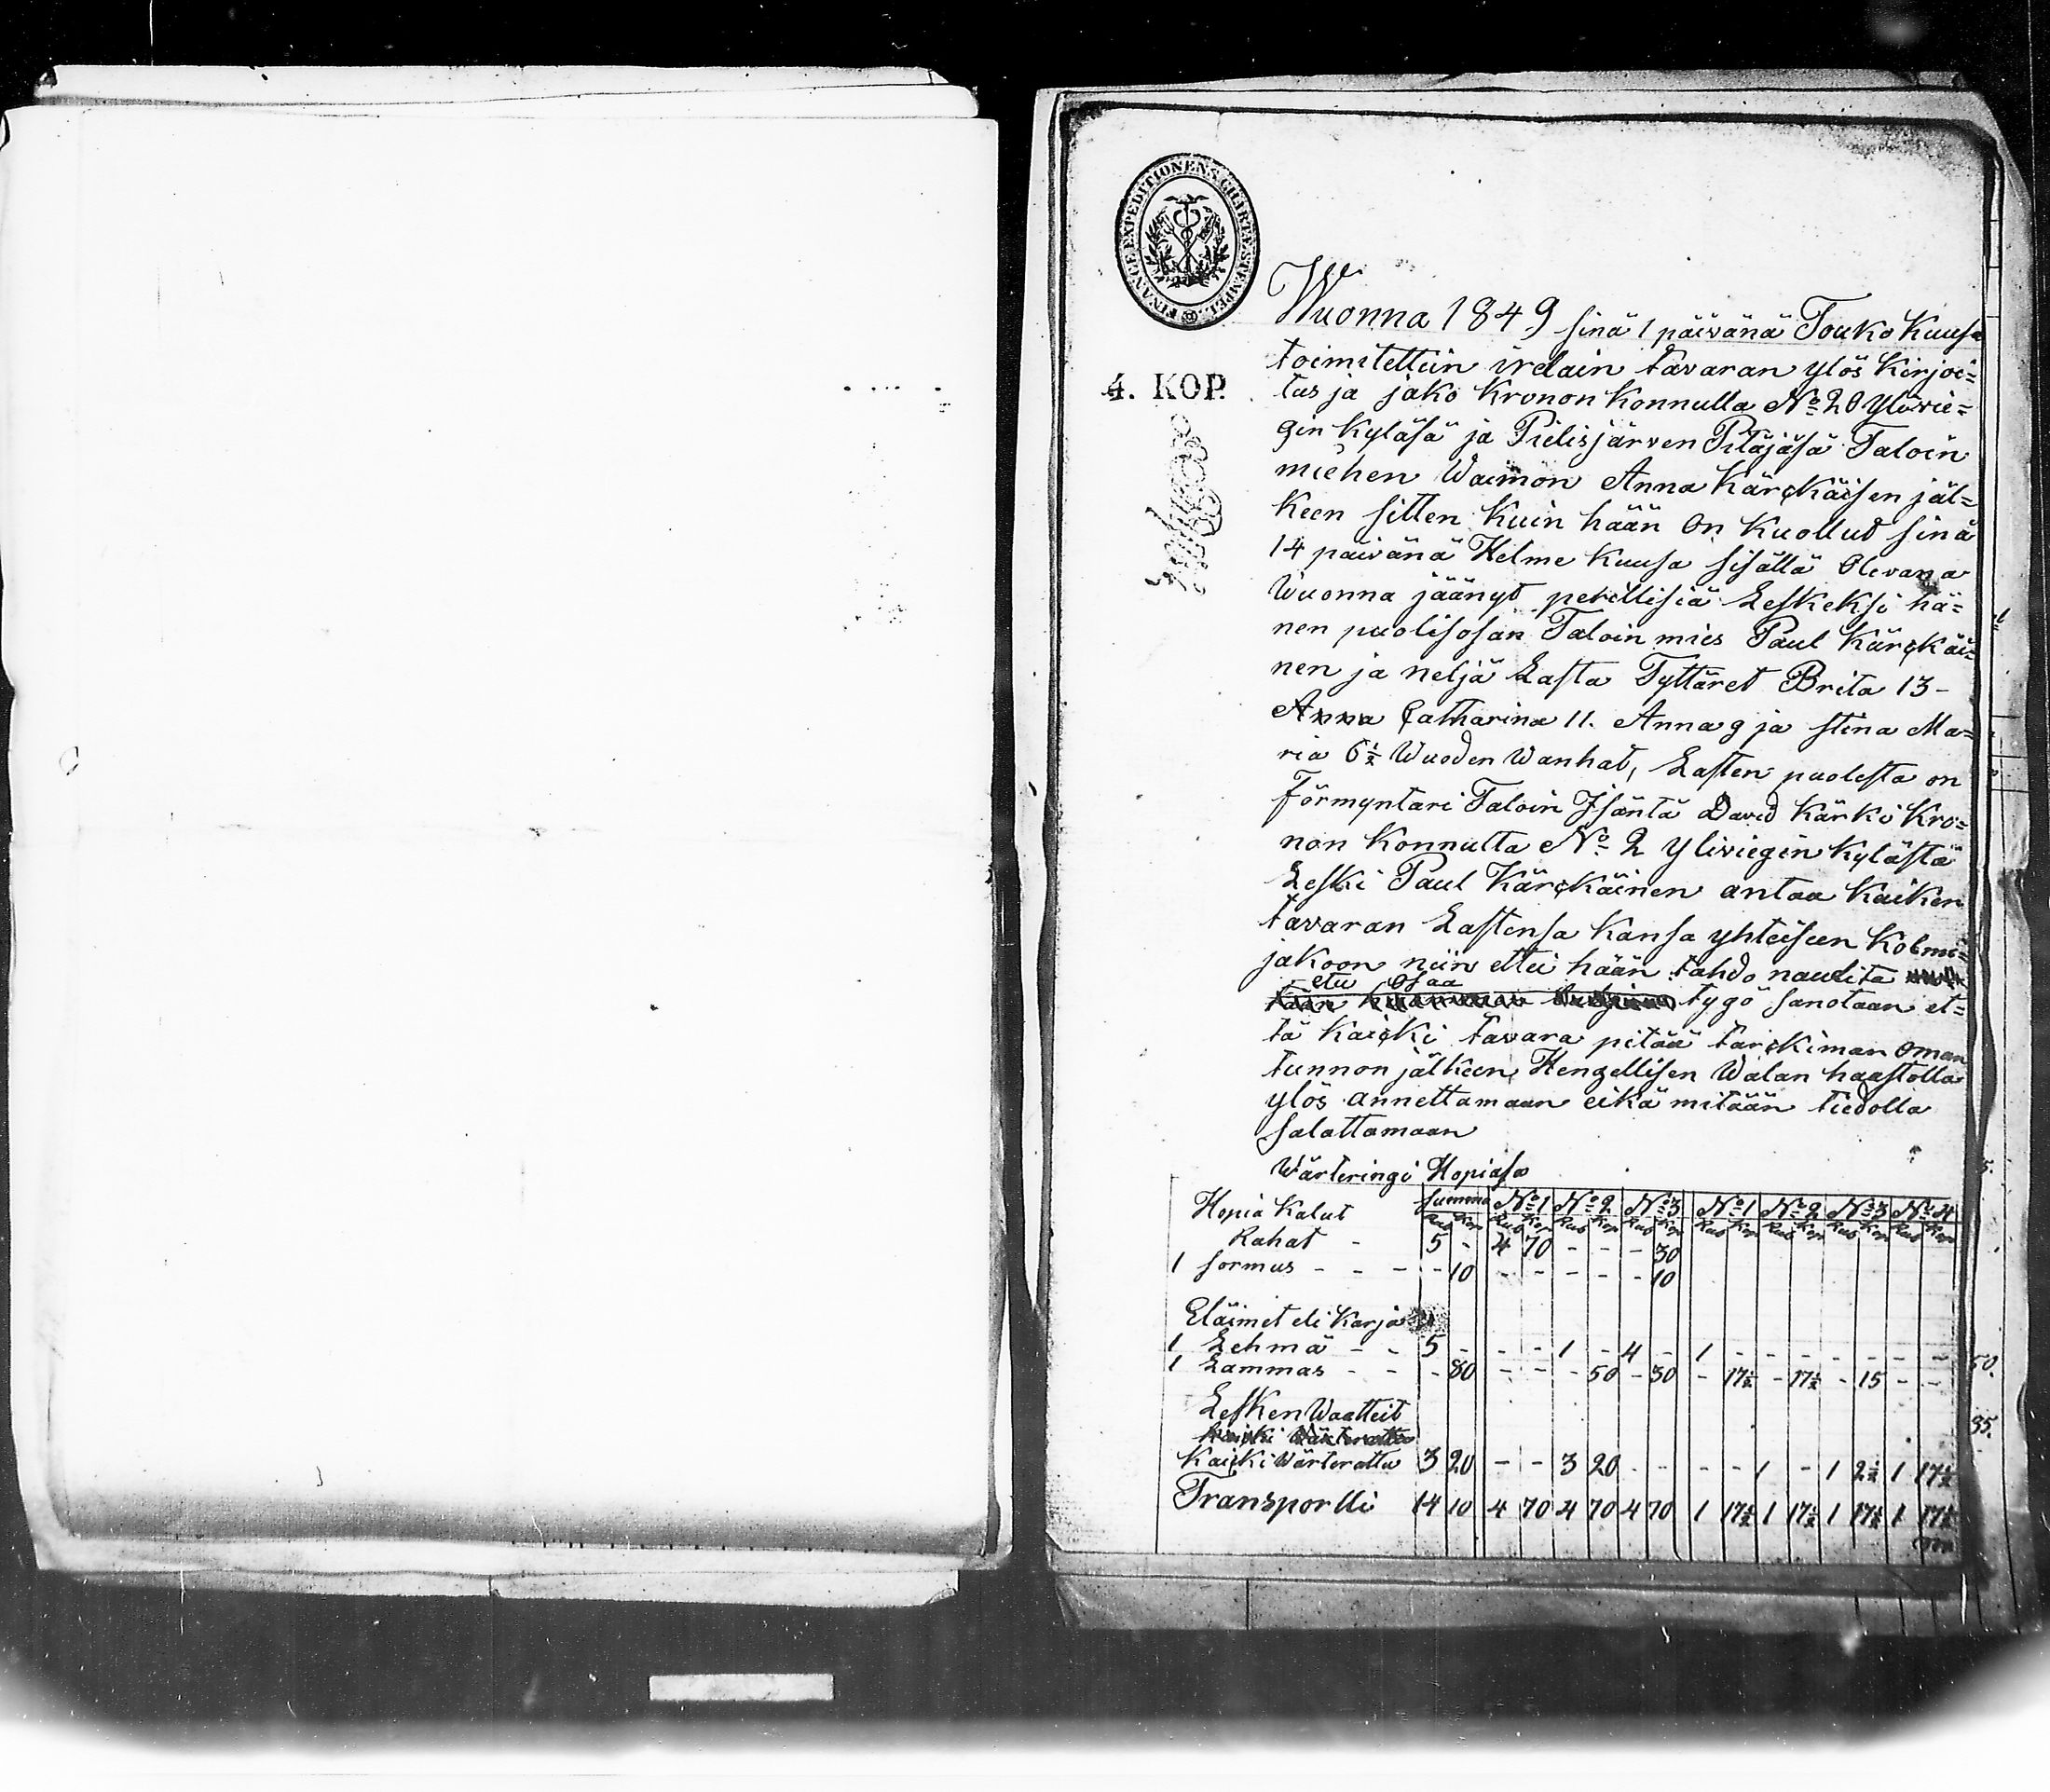 FINANCE EXPEDITIONENS CHARTÆ STEMPEL
4. KOP.
Wuonna 1849 sinä 1 päivänä Touko Kuusa
toimitettiin irdain tavaran ylös Kirjoi=
tus ja jako Kronon Konnulla No 20 Yliwie=
gin Kyläsä ja Pielisjärven Pitäjäsä Taloin
miehen Waimon Anna Kärckäisen jäl=
keen sitten kuin hään on Kuollud sinä
14 päivänä Helme Kuusa sisällä Olevana
Wuonna jäänyt perillisiä Leskeksi hä=
nen puolisosan Taloin mies Paul Kärckäi=
nen ja neljä Lasta Tyttäret Brita 13-
Anna Catharina 11. Anna 9 ja Stina Ma=
ria 6½ Wuoden Wanhat, Lasten puolesta on
Förmyntari Taloin Isäntä David Kärki Kro=
non Konnulta No 2 Yliviegin Kylästä
Leski Paul Kärckäinen antaa Kaiken
tavaran Lastensa Kansa yhteiseen Kolmi=
jakoon niin ettei hään tahdo naudita
etu Osaa
tygö sanotaan et=
tä Kaicki tavara pitää tarckiman Oman
tunnon jälkeen Hengellisen Walan haastolla
ylös annettamaan eikä mitään tiedolla
salattamaan
Wärteringi Hopiasa
Hopia Kalut Summa No 1 No 2 No 3 No 1 No 2 No 3 No 4
Rub Kop Rub Kop Rub Kop Rub Kop Rub Kop Rub Kop Rub Kop Rub Kop
Rahat - 5 - 4 70 - - - 30
1 Sormus - - - - 10 - - - - - 10
Eläimet eli Karja
1 Lehmä - - 5 - - - 1 - 4 - 1 - - - - - - -
1 Lammas - - - 80 - - - 50 - 30 - 17½ - 17½ - 15 - -
Lesken Waatteit
Kaicki Wärterattu 3 20 - - 3 20 - - - - 1 - 1 2½ 1 17½
Transportti 14 10 4 70 4 70 4 70 1 17½ 1 17½ 1 17½ 1 17½